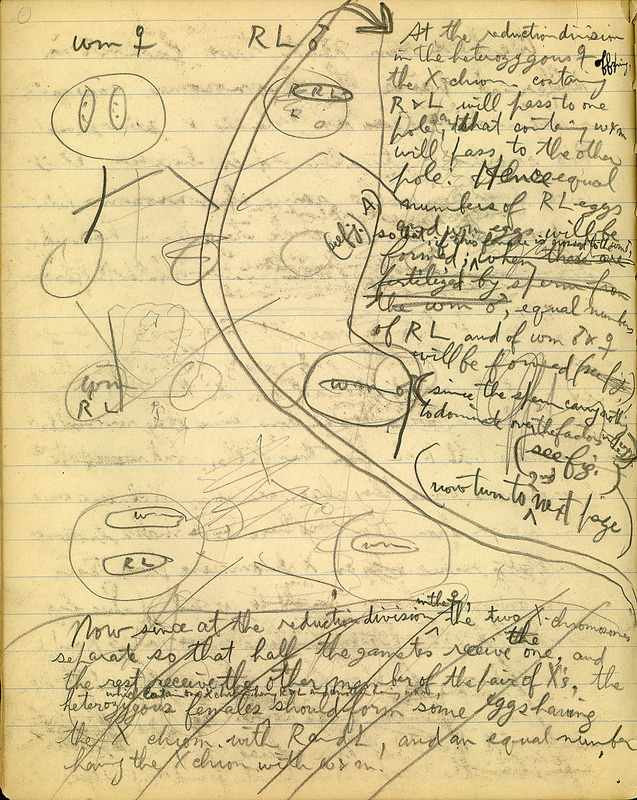 wm ♀ RL ♂
RRL
At the reduction division
in the heterozygous ♀ offspring,
the X-chrom. containg
R & L will pass to one
pole, that containing w & m
will pass to the other
pole. Hence equal
numbers of RL eggs
and wm eggs will be
formed; when those are
fertilized by sperm from
the wm ♂, equal numbers
of RL and of wm ♂ & ♀
will be formed
(since the sperm carry noth
to dominate over the factors in the egg
(see fig.
(now turn to 2nd next page)
A)
wm
RL
wm ♂
wm
RL
wm
Now since at the reduction division in the ♀, the two X-chromosomes
separate so that half the gametes receive the one, and
the rest receive the other member of the pair of X's, the
heterozygous females should form some eggs having
the X chrom. with R and L, and an equal number
having the X chrom with w & m.